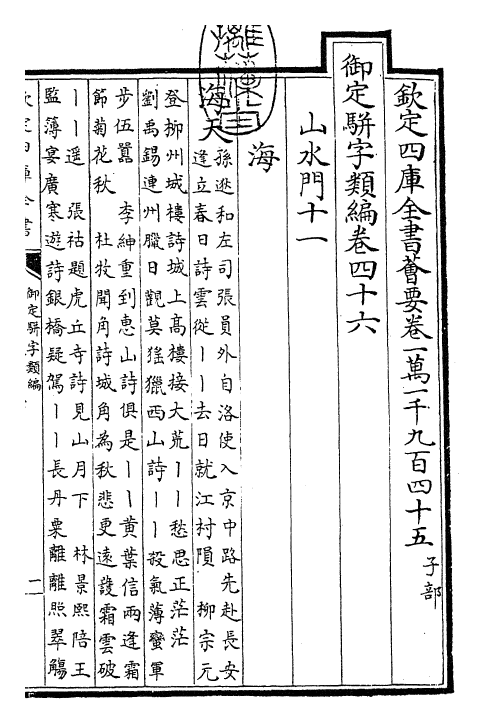 欽定四庫全書薈要卷一萬一千九百四十五 子部
御定駢字類編卷四十六
山水門十一
海
海天 孫逖和左司張員外自洛使入京中路先赴長安
逢立春日詩雲從〡〡去日就江村隕 柳宗元
登柳州城樓詩城上高樓接大荒〡〡愁思正茫茫
劉禹錫連州臘日觀莫猺獵西山詩〡〡殺氣薄蠻軍
步伍囂 李紳重到惠山詩俱是〡〡黃葉信兩逢霜
節菊花秋 杜牧聞角詩城角為秋悲更遠護霜雲破
〡〡遥 張祜題虎丘寺詩見山月下 林景熙陪王
監薄宴廣寒遊詩銀橋疑駕〡〡長丹粟離離照翠觴
欽定四庫全書
御定駢字類編
二